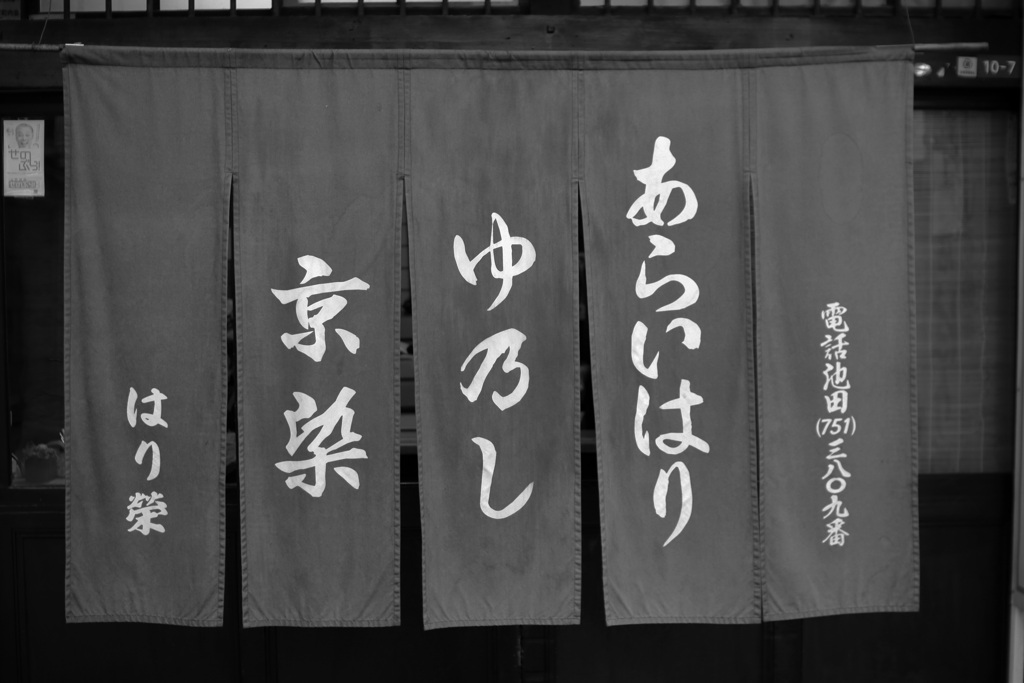 電話池田(751)三八〇九番
あらいはり
ゆ乃し
京染
はり榮
10-7